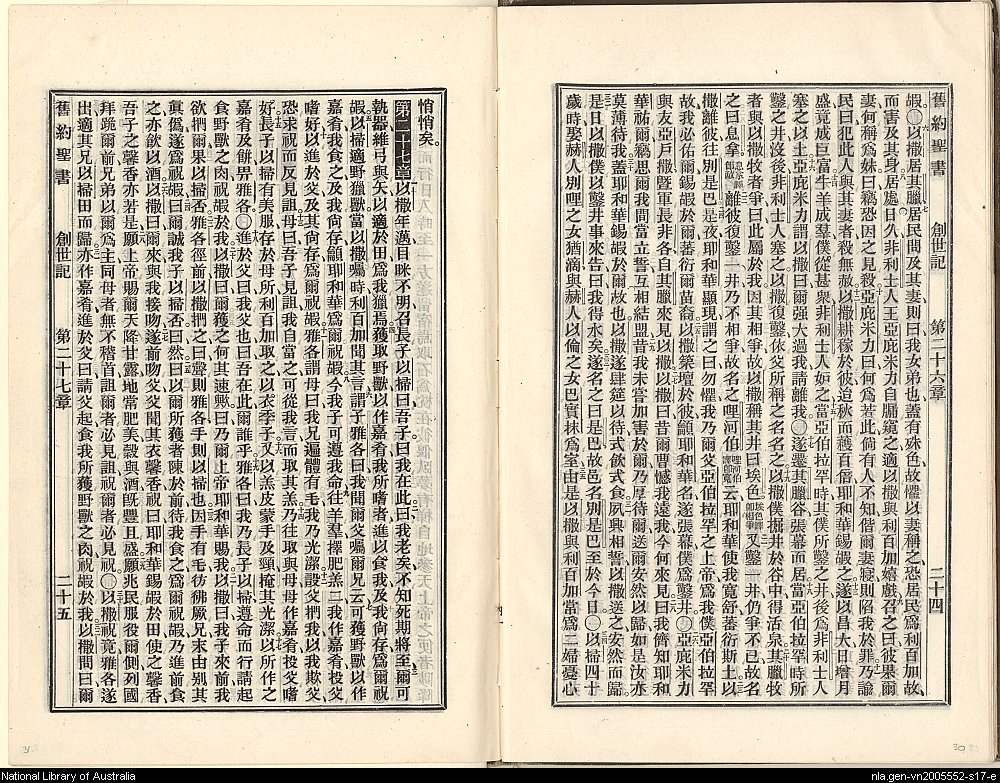 舊約聖書 創世記 第二十六章 二十四
嘏〇以撒居其臘居民問及其妻則曰我女弟也蓋有殊色故懼以妻稱之恐居民爲利百加故
而害及其身居處日久非利士人王亞庇米力自牖窺之適以撒與利百加嬉戲召之曰彼果爾
妻何稱爲妹曰竊恐因之見殺亞庇米力曰何爲若此倘有人不知偕爾妻寢則陷我於罪乃諭
民曰犯此人與其妻者殺無赦以撒耕稼於彼迨秋而穫百倍耶和華錫嘏之遂以昌大日增月
盛竟成巨富牛羊成羣僕從甚衆非利士人妒之當亞伯拉罕時其僕所鑿之井後爲非利士人
塞之以土亞庇米力謂以撒曰爾强大過我請離我〇遂至其臘谷張幕而居當亞伯拉罕時所
鑿之井沒後非利士人塞之以撒復鑿依父所稱之名名之以撒僕掘井於谷中得活泉其臘牧
者與以撒牧者爭曰此屬於我因其相爭故以撒稱其井曰埃色埃色譯卽相爭又鑿一井仍爭不已故名
之曰息拿息拿譯卽敵離彼復鑿一井乃不相爭故名之哩河伯哩河伯譯卽寬云耶和華使我寬舒蕃衍斯土以
撒離彼往別是巴是夜耶和華顯現謂之曰勿懼我乃爾父亞伯拉罕之上帝爲我僕亞伯拉罕
故我必祐爾錫嘏於爾蕃衍爾苗裔以撒築壇於彼籲耶和華名遂張幕僕爲鑿井〇亞庇米力
與友亞戶撒暨軍長非各自其臘來見以撒以撒曰昔爾曹憾我遠我今何來見曰我儕知耶和
華祐爾竊思爾我間當立誓互相結盟昔我未嘗加害於爾乃厚待爾送爾安然以歸如是汝亦
莫薄待我蓋耶和華錫嘏於爾故也以撒遂肆筵以待式飲式食夙興相誓以撒送之安然而歸
是日以撒僕以鑿井事來告曰我得水矣遂名之曰是巴故邑名別是巴至於今日〇以掃四十
歲時娶赫人別哩之女猶滴與赫人以倫之女巴實抹爲室由是以撒與利百加當爲二婦憂心
悄悄矣
第二十七章以撒年邁目眯不明召長子以掃曰吾子曰我在此曰我老矣不知死期將至爾可
執器維弓與矢以適於田爲我獵焉獲取野獸以作嘉肴我所嗜者進以食我及我尙存爲爾祝
嘏以掃適野獵獸當以撒囑時利百加聞其言謂子雅各曰我聞爾父囑爾兄云可獲野獸以作
嘉肴俾我食之及我尙存籲耶和華爲爾祝嘏今我子可遵我命往羊羣擇肥羔二我作嘉肴投父
嗜好以進於父及其尙存爲爾祝嘏雅各謂母曰我兄遍體有毛我乃光潔設父捫我以我欺父
恐求祝而反見詛母曰吾子見詛我自當之可從我言而取其羔乃往取與母母作嘉肴投父嗜
好長子以掃有美服存於母所利百加取之以衣季子又以羔皮蒙手及頸掩其光潔以所作之
嘉肴及餅畀雅各〇進於父曰我父也曰吾在此爾誰乎雅各曰我乃長子以掃遵命而行請起
食野獸之肉祝嘏於我以撒曰爾獲之何其速歟曰乃爾上帝耶和華賜我以撒曰我子來前我
欲捫爾果以掃否雅各徑前以撒捫之曰聲則雅各手則以掃也因手有毛彷彿厥兄末由別其
眞僞遂爲祝嘏曰爾誠我子以掃否曰然曰以爾所獲者陳於前待我食之爲爾祝嘏乃進前食
之亦飲以酒以撒曰爾來與我接吻遂前吻父父聞其衣馨香祝曰耶和華錫嘏於田使之馨香
吾子之馨香亦若是願上帝賜爾天降甘露地常肥美穀與酒旣豐且盛願兆民服役爾側列國
拜跪爾前兄弟以爾爲主同母者無不稽首詛爾者必見詛祝爾者必見祝〇以撒祝竟雅各遂
出適其兄以掃田而歸亦作嘉肴進於父曰請父起食我所獲野獸之肉祝嘏於我以撒問曰爾
舊約聖書 創世記 第二十七章 二十五
National Library of Australia
nla.gen-vn2005552-s17-e